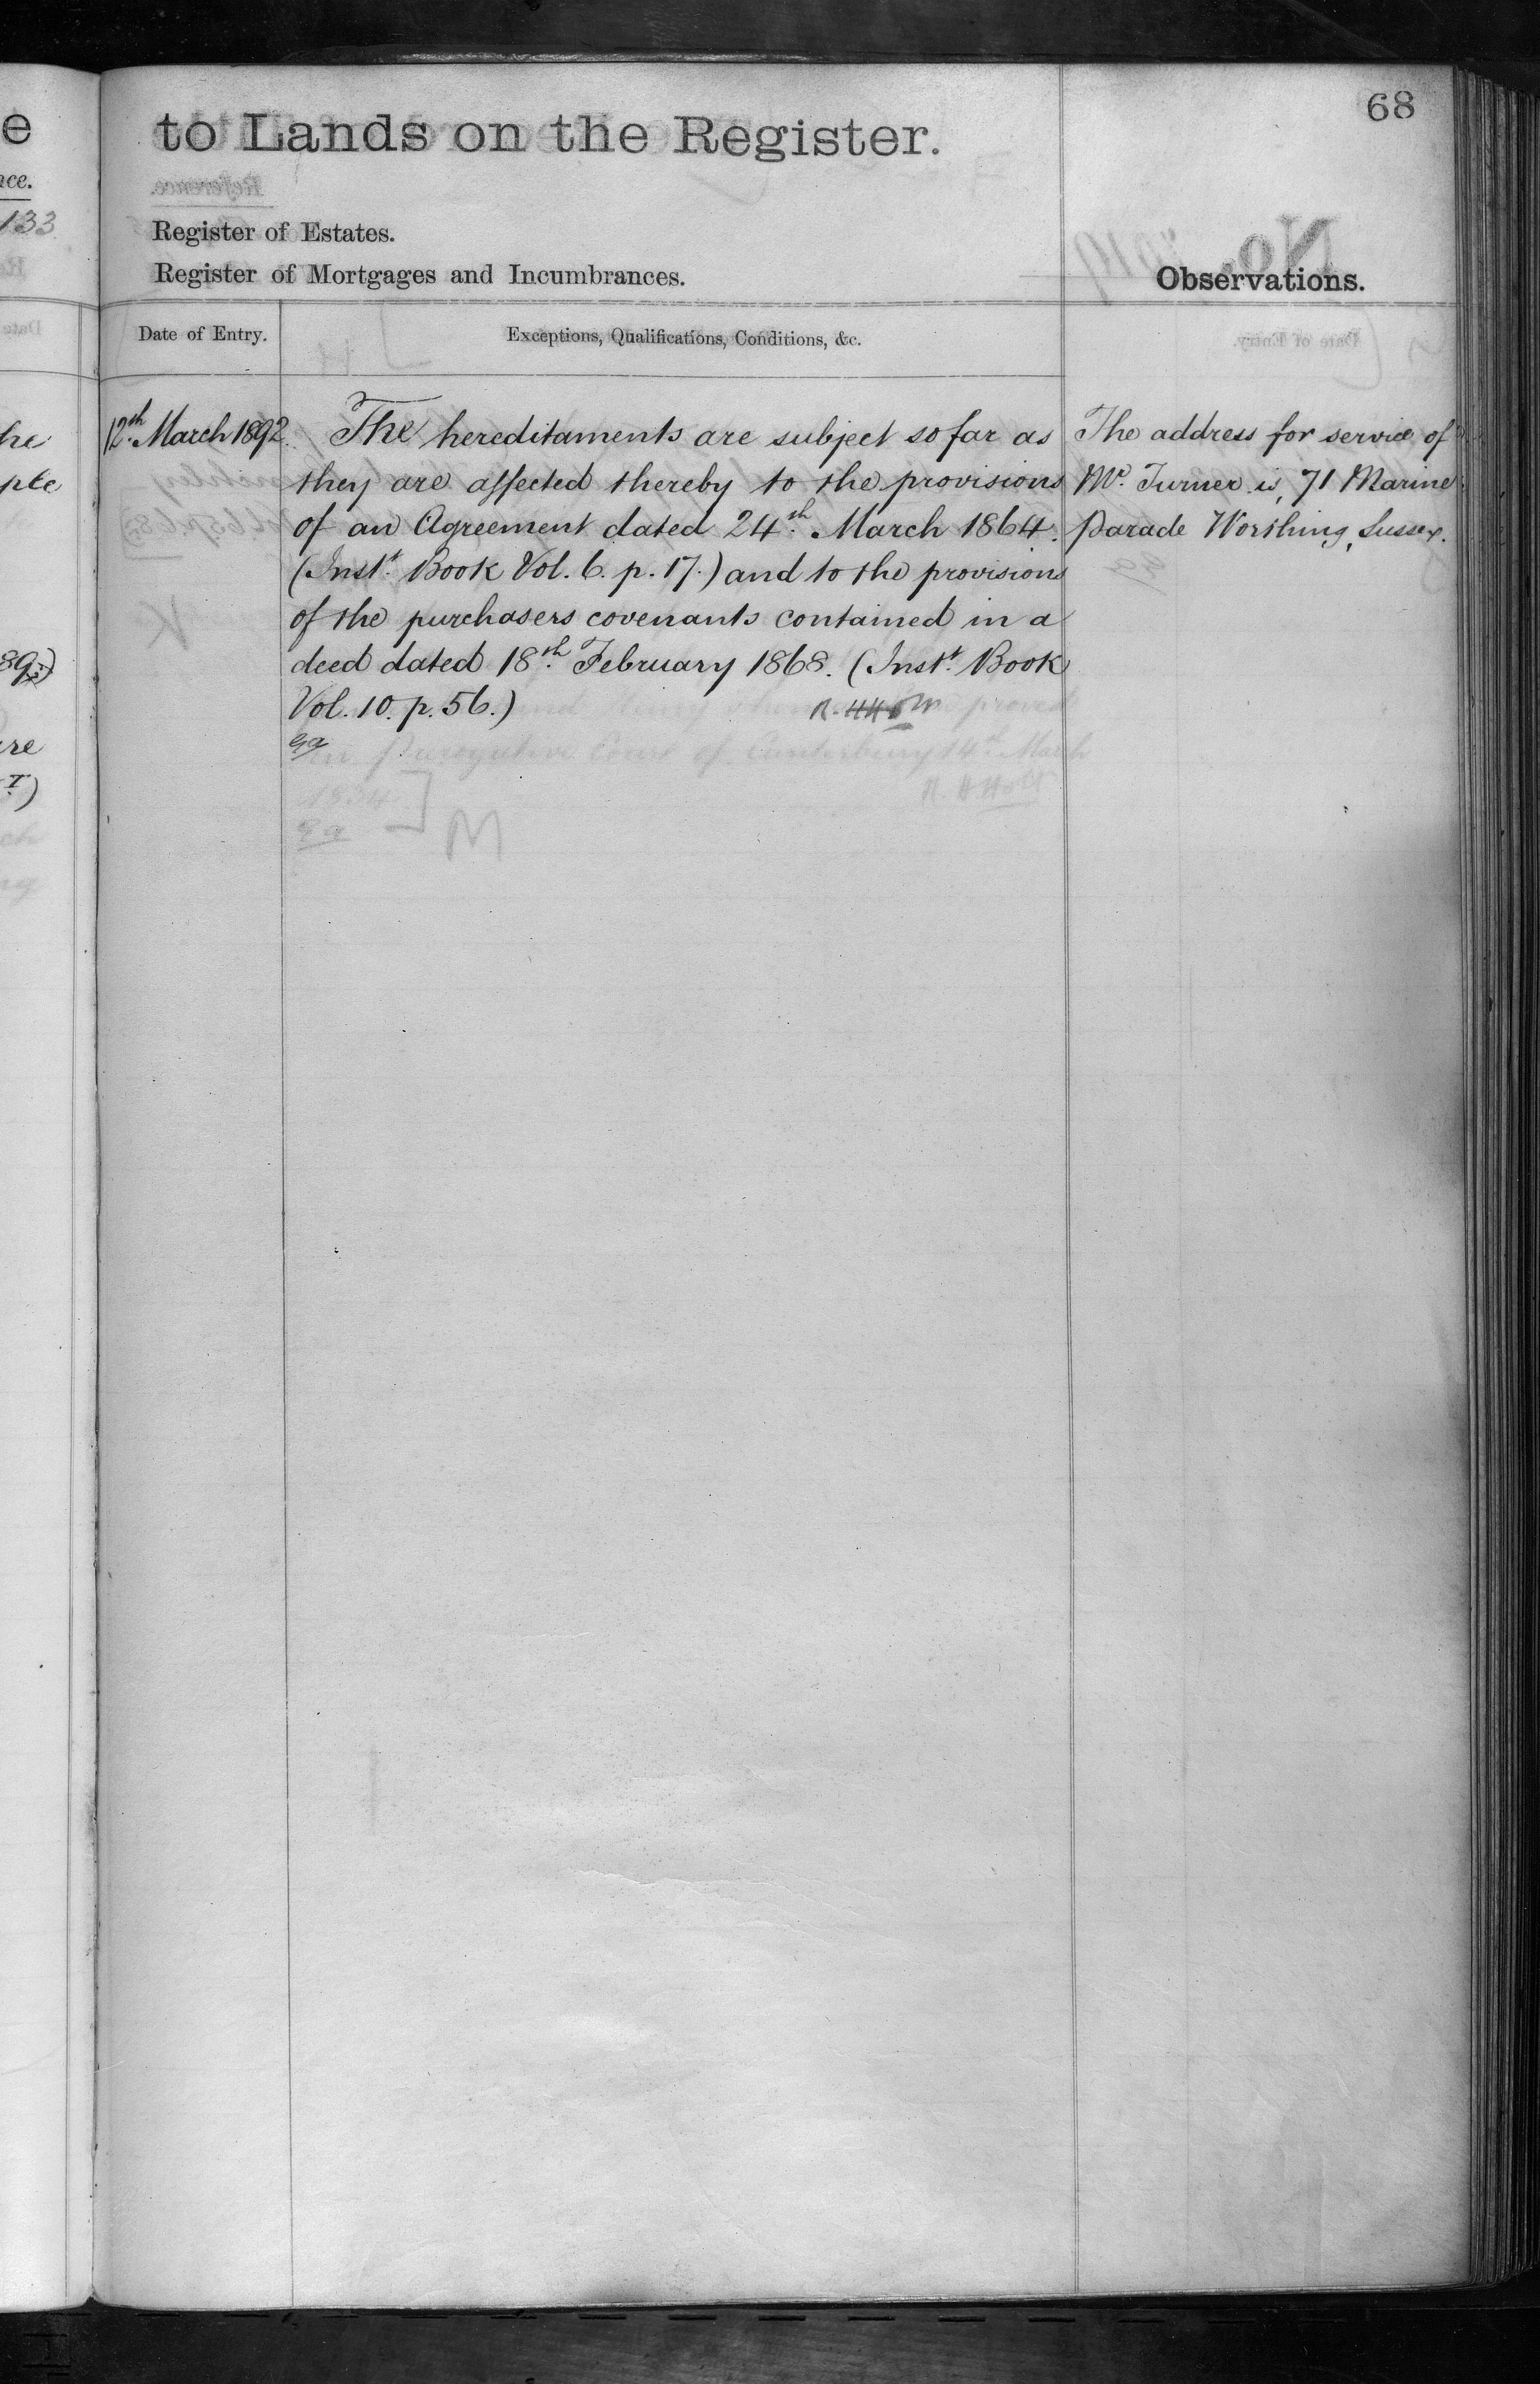 68
to Lands on the Register.
Register of Estates.
Register of Mortgages and Incumbrances.
Observations.
Date of Entry.
Exceptions, Qualifications, Conditions, &c.
12th. March 1892.
The hereditaments are subject so far as
they are affected thereby to the provisions
of an Agreement dated 24th. March 1864.
(Instt. Book Vol. 6. p. 17.) and to the provisions
of the purchasers covenants contained in a
deed dated 18th. February 1868. (Instt. Book
Vol. 10. p. 56.)
The address for service of
Mr. Turner is, 71 Marine
Parade Worthing, Sussex.
in Prerogative Court of Canterbury 14th March
1834
M
e
nce.
133
he
ple